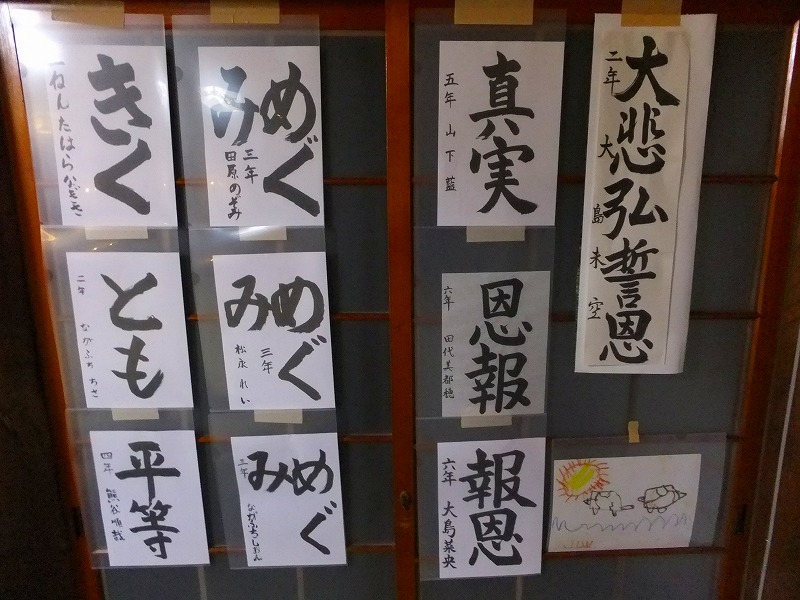 大悲弘誓恩
二年 大島未空
真実
五年 山下藍
恩報
六年 田代美都穂
報恩
六年 大島菜央
めぐみ
三年 田原のぞみ
めぐみ
三年 松永れい
めぐみ
三年 ながふちしおん
きく
一ねんたはらかずさ
とも
二年 ながふちちさ
平等
四年 熊谷順哉